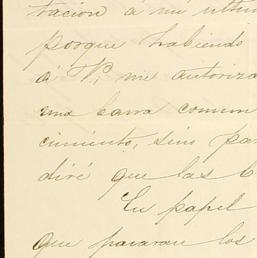 tracion á mi ultim
porque habiendo
á V, me autoriza
una barra comun
cimiento, sino par
diré que las C
En papel
que pararan los